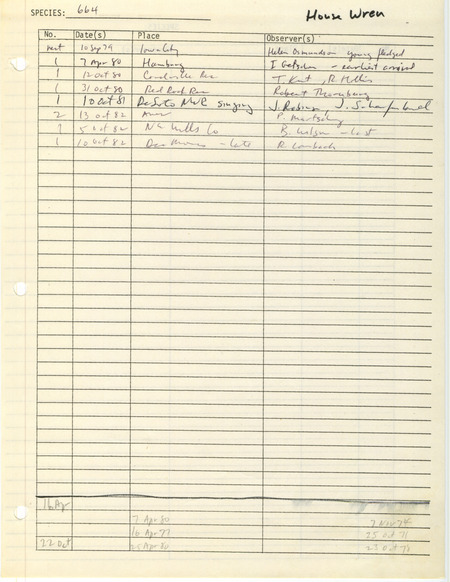 SPECIES: 664 House Wren
No. Date(s) Place Observer(s)
nest 10 Sep 79 Iowa City Helen Osmundson young fledged
1 7 Apr 80 Hamburg I Getscher - earliest arrival
1 12 Oct 80 Coralville Res T. Kent, R. Mullin
1 31 Oct 80 Red Rock Res Robert Thornburg
1 10 Oct 81 DeSoto NWR singing J. Robinson, J. Schaufenbuel
2 13 Oct 82 P. Martsching
1 5 Oct 82 Mills Co B. Wilson - last
1 10 Oct 82 Des Moines - late R.
16 Apr
7 Apr 80 7 Nov 74
16 Apr 77 25 Oct 71
22 Oct 25 Apr 80 23 Oct 78